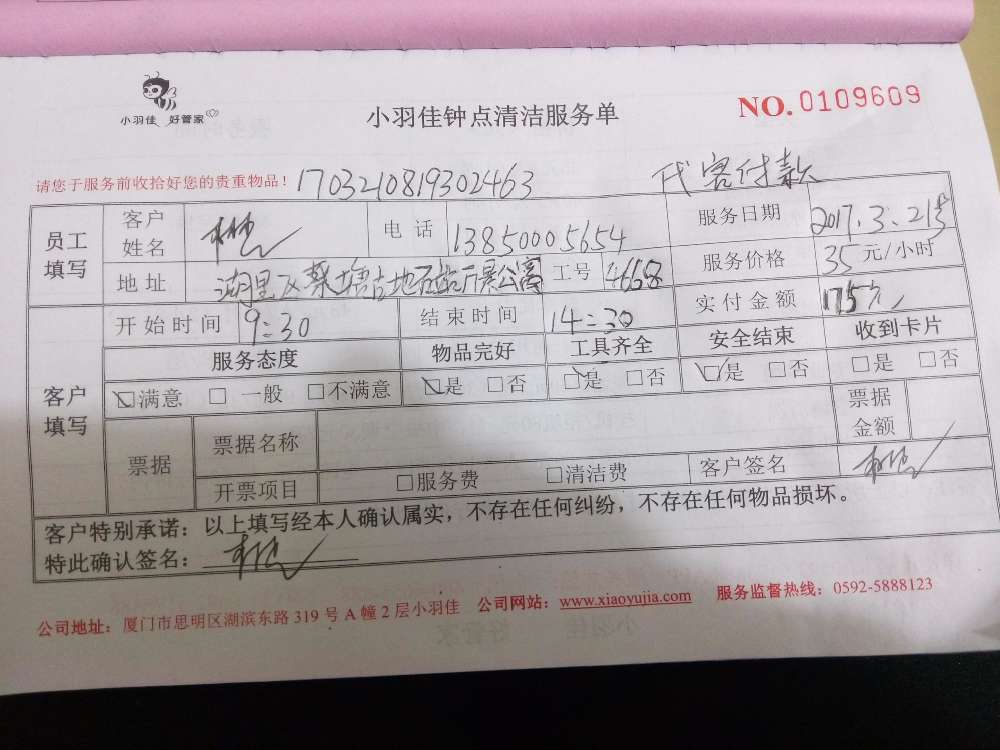 小羽佳 好管家
小羽佳钟点清洁服务单
NO. 0109609
请您于服务前收拾好您的贵重物品！ 1703210819302463 代客付款
员工填写 客户姓名 电话 13850005654 服务日期 2017.3.21号
地址 湖里区蔡塘古地石 公寓 工号 4668 服务价格 35元/小时
客户填写 开始时间 9:30 结束时间 14:30 实付金额 175元
服务态度 物品完好 工具齐全 安全结束 收到卡片
☑满意 □ 一般 □不满意 ☑是 □否 ☑是 □否 ☑是 □否 □是 □否
票据 票据名称 票据金额
开票项目 □服务费 □清洁费 客户签名
客户特别承诺：以上填写经本人确认属实，不存在任何纠纷，不存在任何物品损坏。
特此确认签名：
公司地址：厦门市思明区湖滨东路319号A幢2层小羽佳 公司网站：www.xiaoyujia.com 服务监督热线：0592-5888123